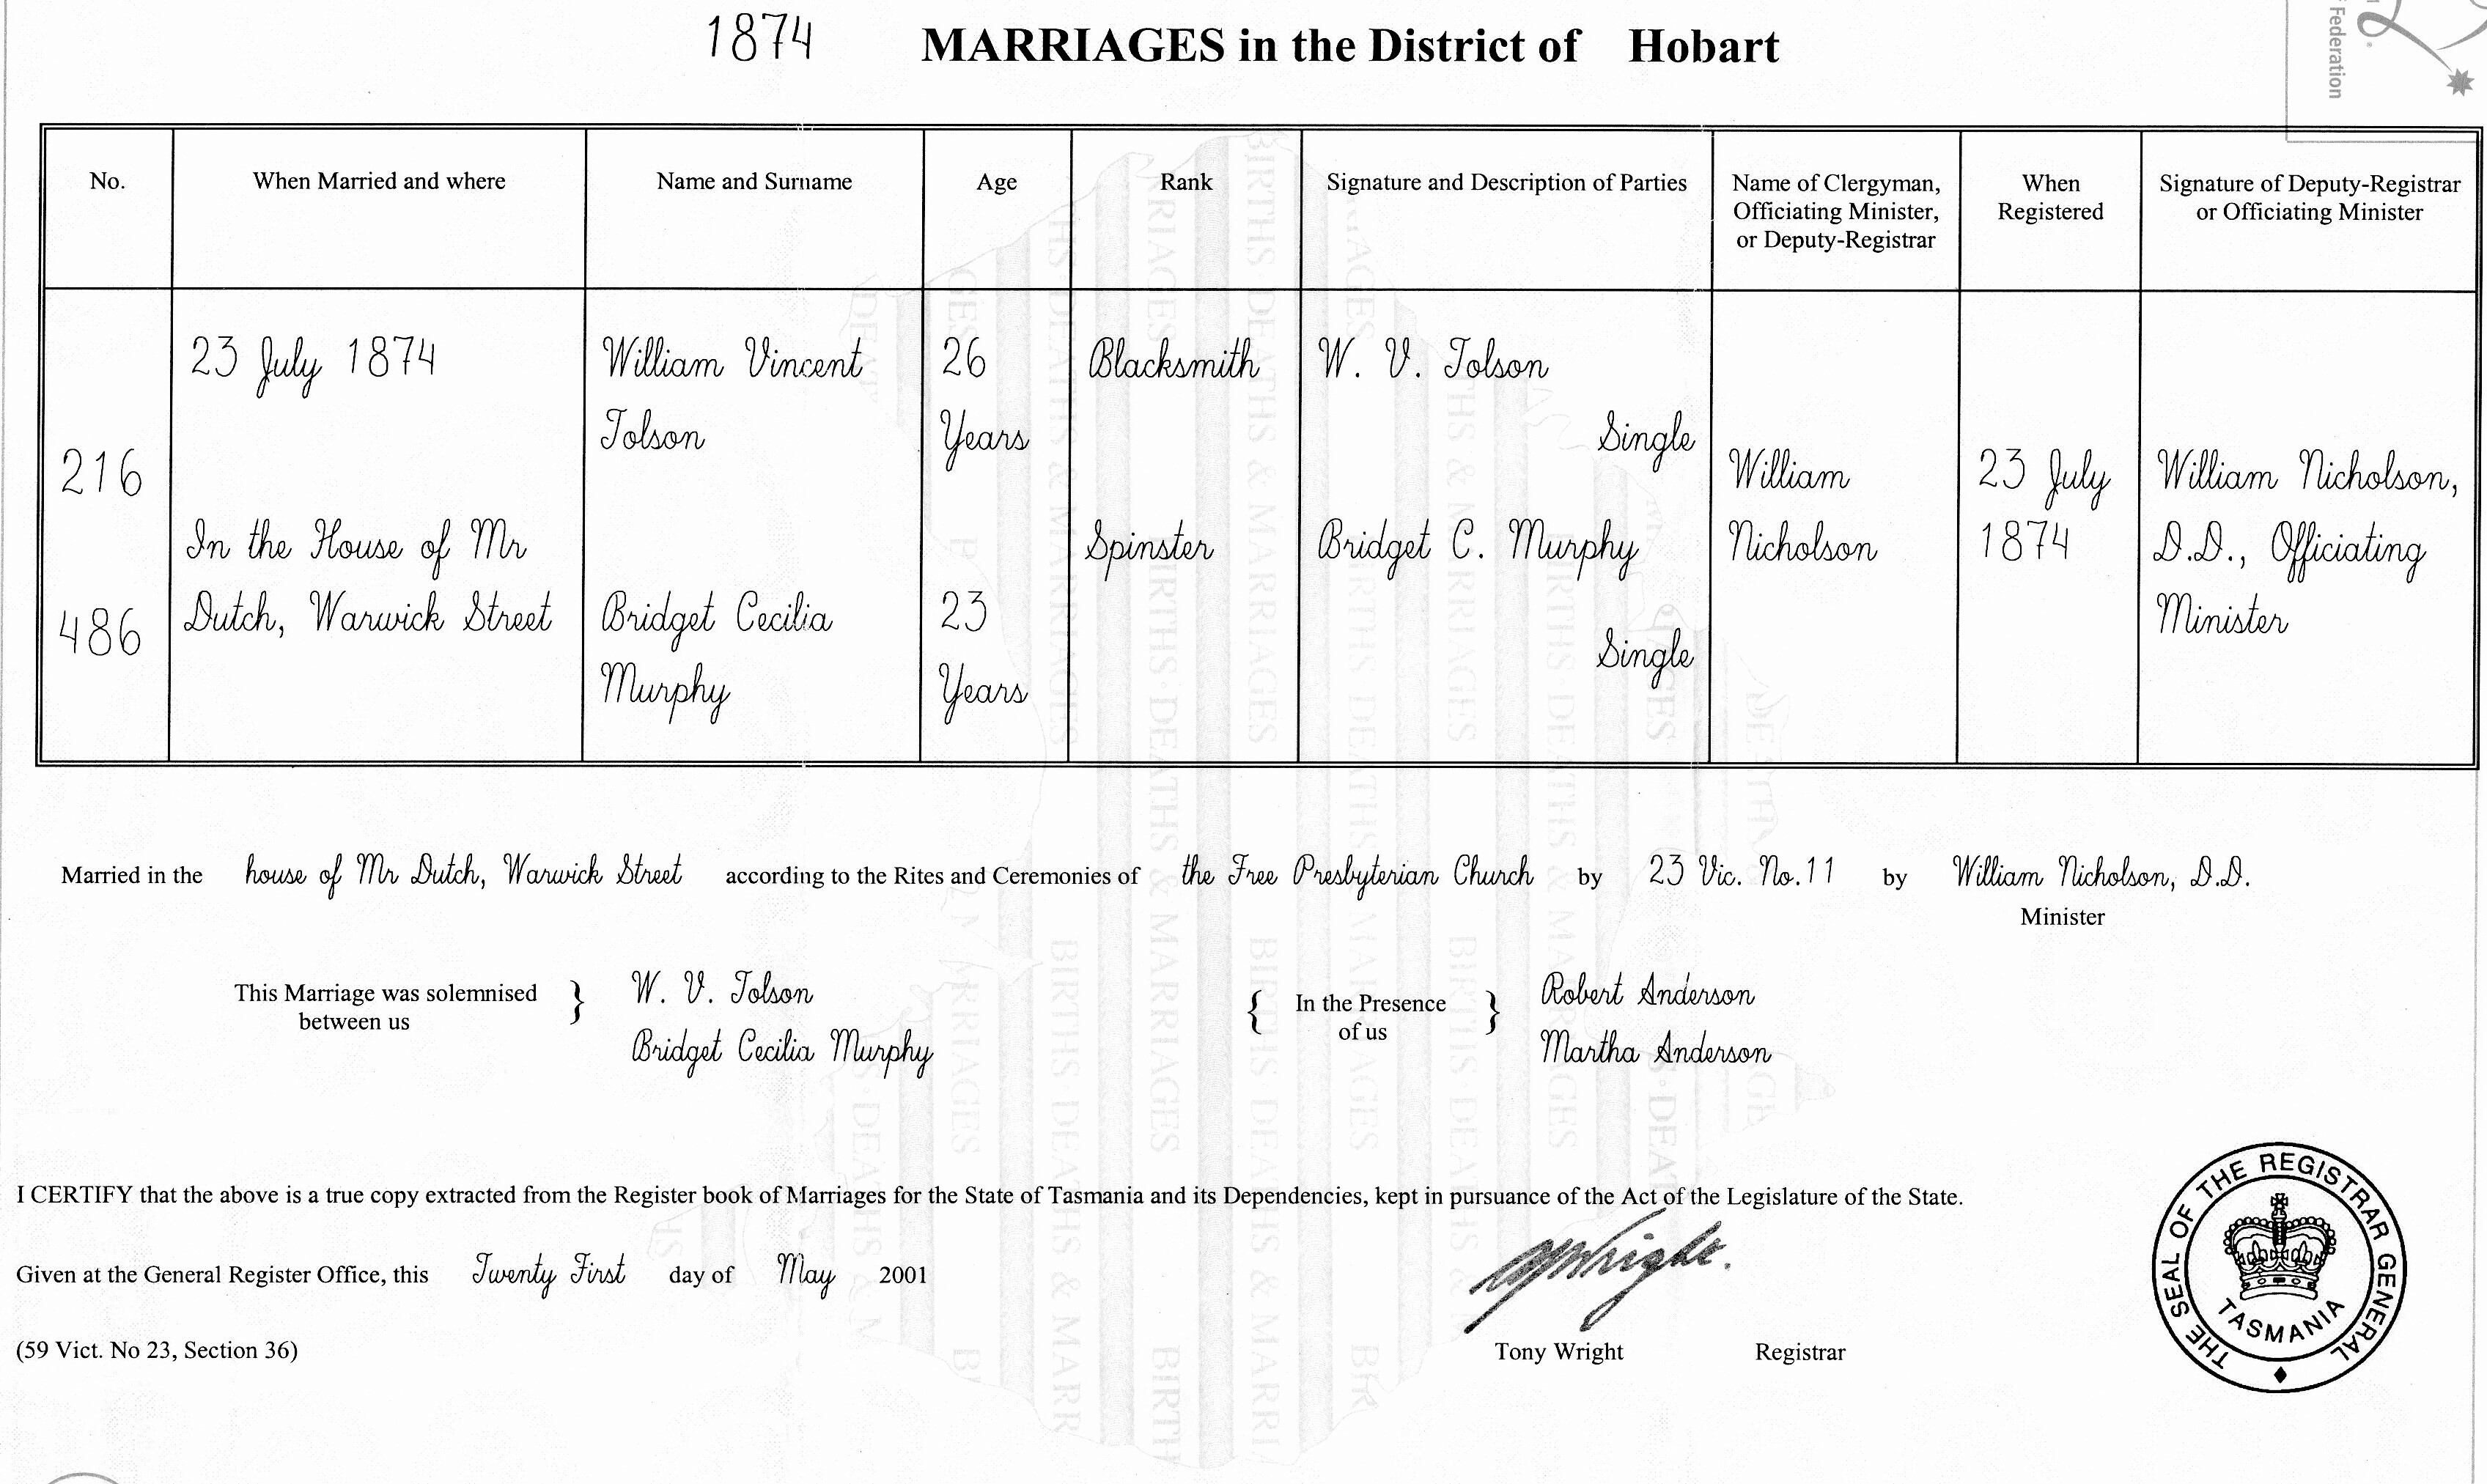 1874 MARRIAGES in the District of Hobart
Federation
No. When Married and where Name and Surname Age Rank Signature and Description of Parties Name of Clergyman, Officiating Minister, or Deputy-Registrar When Registered Signature of Deputy-Registrar or Officiating Minister
23 July 1874 William Vincent 26 Blacksmith W. V. Tolson
Tolson Years Single
216 William 23 July William Nicholson,
In the House of Mr Spinster Bridget C. Murphy Nicholson 1874 D.D., Officiating
486 Dutch, Warwick Street Bridget Cecilia 23 Minister
Single
Murphy Years
Married in the house of Mr Dutch, Warwick Street according to the Rites and Ceremonies of the Free Presbyterian Church by 23 Vic. No.11 by William Nicholson, D.D.
Minister
This Marriage was solemnised between us } W. V. Tolson { In the Presence of us } Robert Anderson
Bridget Cecilia Murphy Martha Anderson
I CERTIFY that the above is a true copy extracted from the Register book of Marriages for the State of Tasmania and its Dependencies, kept in pursuance of the Act of the Legislature of the State.
Given at the General Register Office, this Twenty First day of May 2001
(59 Vict. No 23, Section 36) Tony Wright Registrar
THE SEAL OF THE REGISTRAR GENERAL
TASMANIA